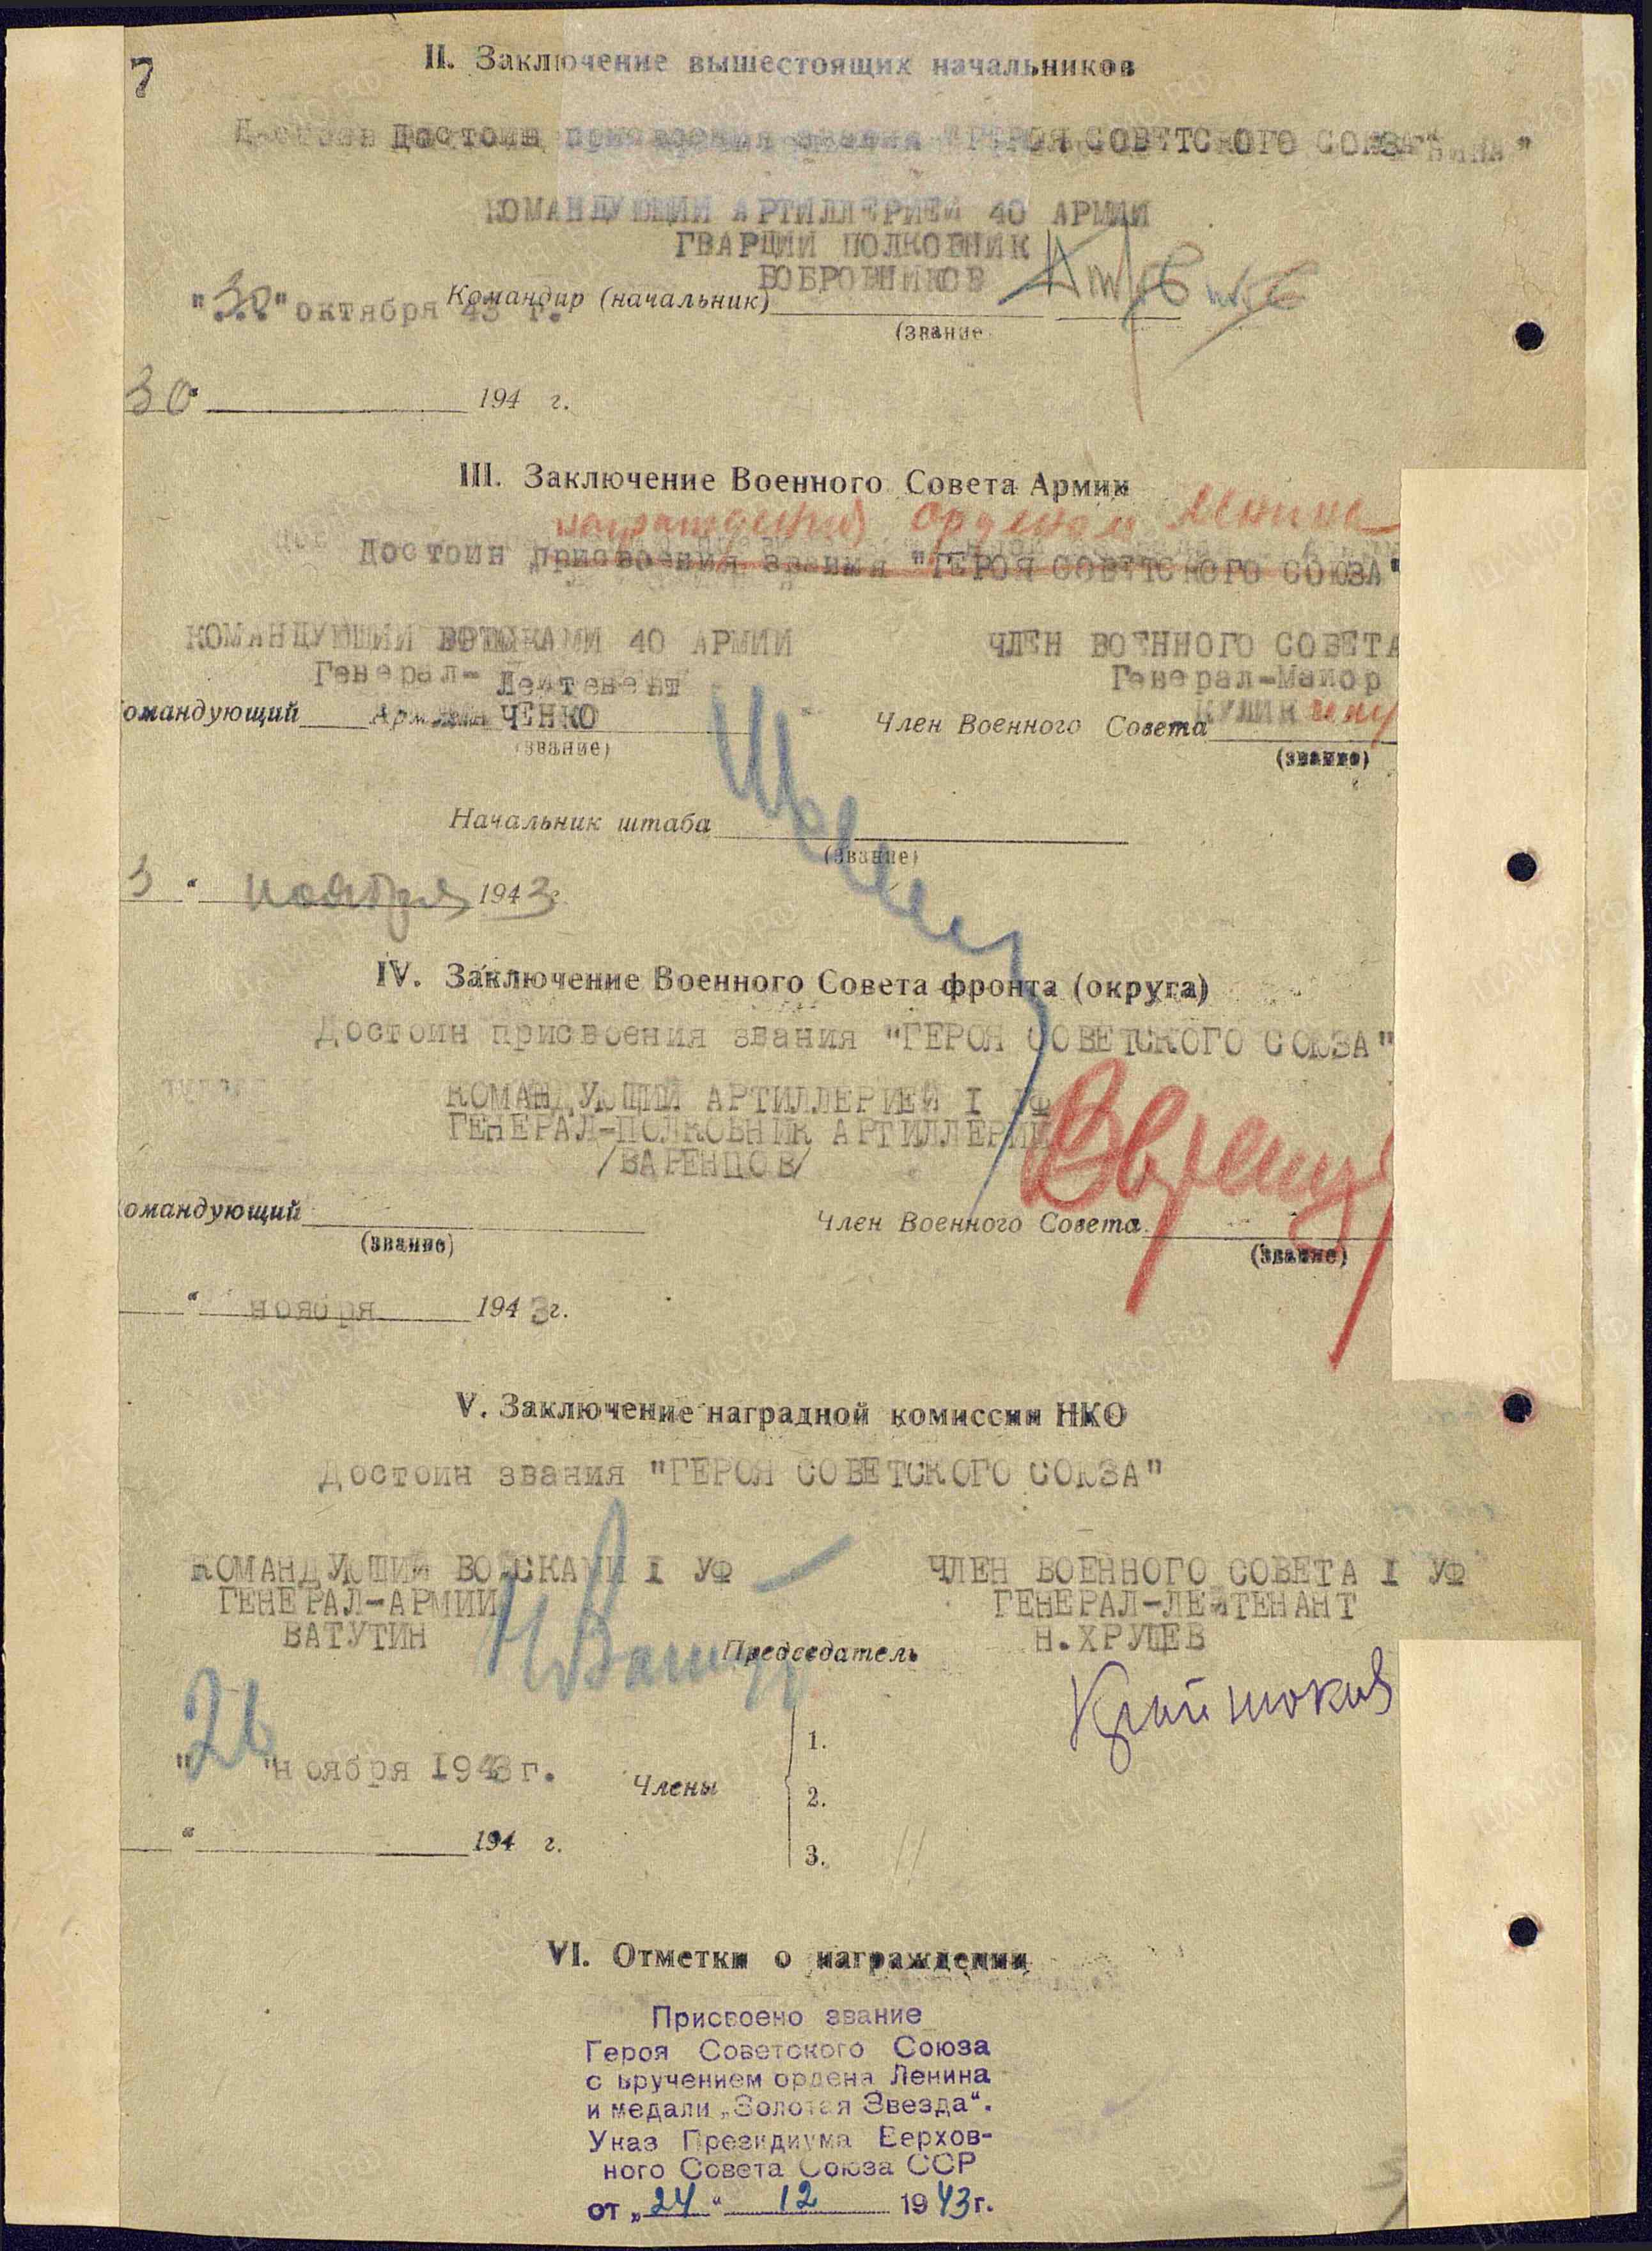 7
II. Заключение вышестоящих начальников
Достоин присвоения звания "ГЕРОЯ СОВЕТСКОГО СОЮЗА"
КОМАНДУЮЩИЙ АРТИЛЛЕРИЕЙ 40 АРМИИ
ГВАРЦИИ ПОЛКОВНИК
БОБРОВНИКОВ
"30" октября 43 г. Командир (начальник)
(звание
30" 194 г.
III. Заключение Военного Совета Армии
награждения орденом Ленина
Достоин присвоения звания "ГЕРОЯ СОВЕТСКОГО СОЮЗА"
КОМАНДУЮЩИЙ ВОЙСКАМИ 40 АРМИИ ЧЛЕН ВОЕННОГО СОВЕТА
Генерал-Лейтенант Генерал-Майор
омандующий ЧЕНКО Член Военного Совета
(звание) (звание)
Начальник штаба
(звание)
3 " ноября 1943 г.
IV. Заключение Военного Совета фронта (округа)
Достоин присвоения звания "ГЕРОЯ СОВЕТСКОГО СОЮЗА"
КОМАНДУЮЩИЙ АРТИЛЛЕРИЕЙ I УФ
ГЕНЕРАЛ-ПОЛКОВНИК АРТИЛЛЕРИИ
/ВАРЕНЦОВ/
омандующий Член Военного Совета
(звание) (звание)
" ноября 1943 г.
V. Заключение наградной комиссии НКО
Достоин звания "ГЕРОЯ СОВЕТСКОГО СОЮЗА"
КОМАНДУЮЩИЙ ВОЙСКАМИ I УФ ЧЛЕН ВОЕННОГО СОВЕТА I УФ
ГЕНЕРАЛ-АРМИИ ГЕНЕРАЛ-ЛЕЙТЕНАНТ
ВАТУТИН Н.ХРУЩЕВ
Председатель
"26"ноября 1943 г.
Члены
1.
2.
3.
" 194 г.
VI. Отметки о награждении
Присвоено звание
Героя Советского Союза
с вручением ордена Ленина
и медали „Золотая Звезда“.
Указ Президиума Верхов-
ного Совета Союза ССР
от „24“ 12 1943 г.